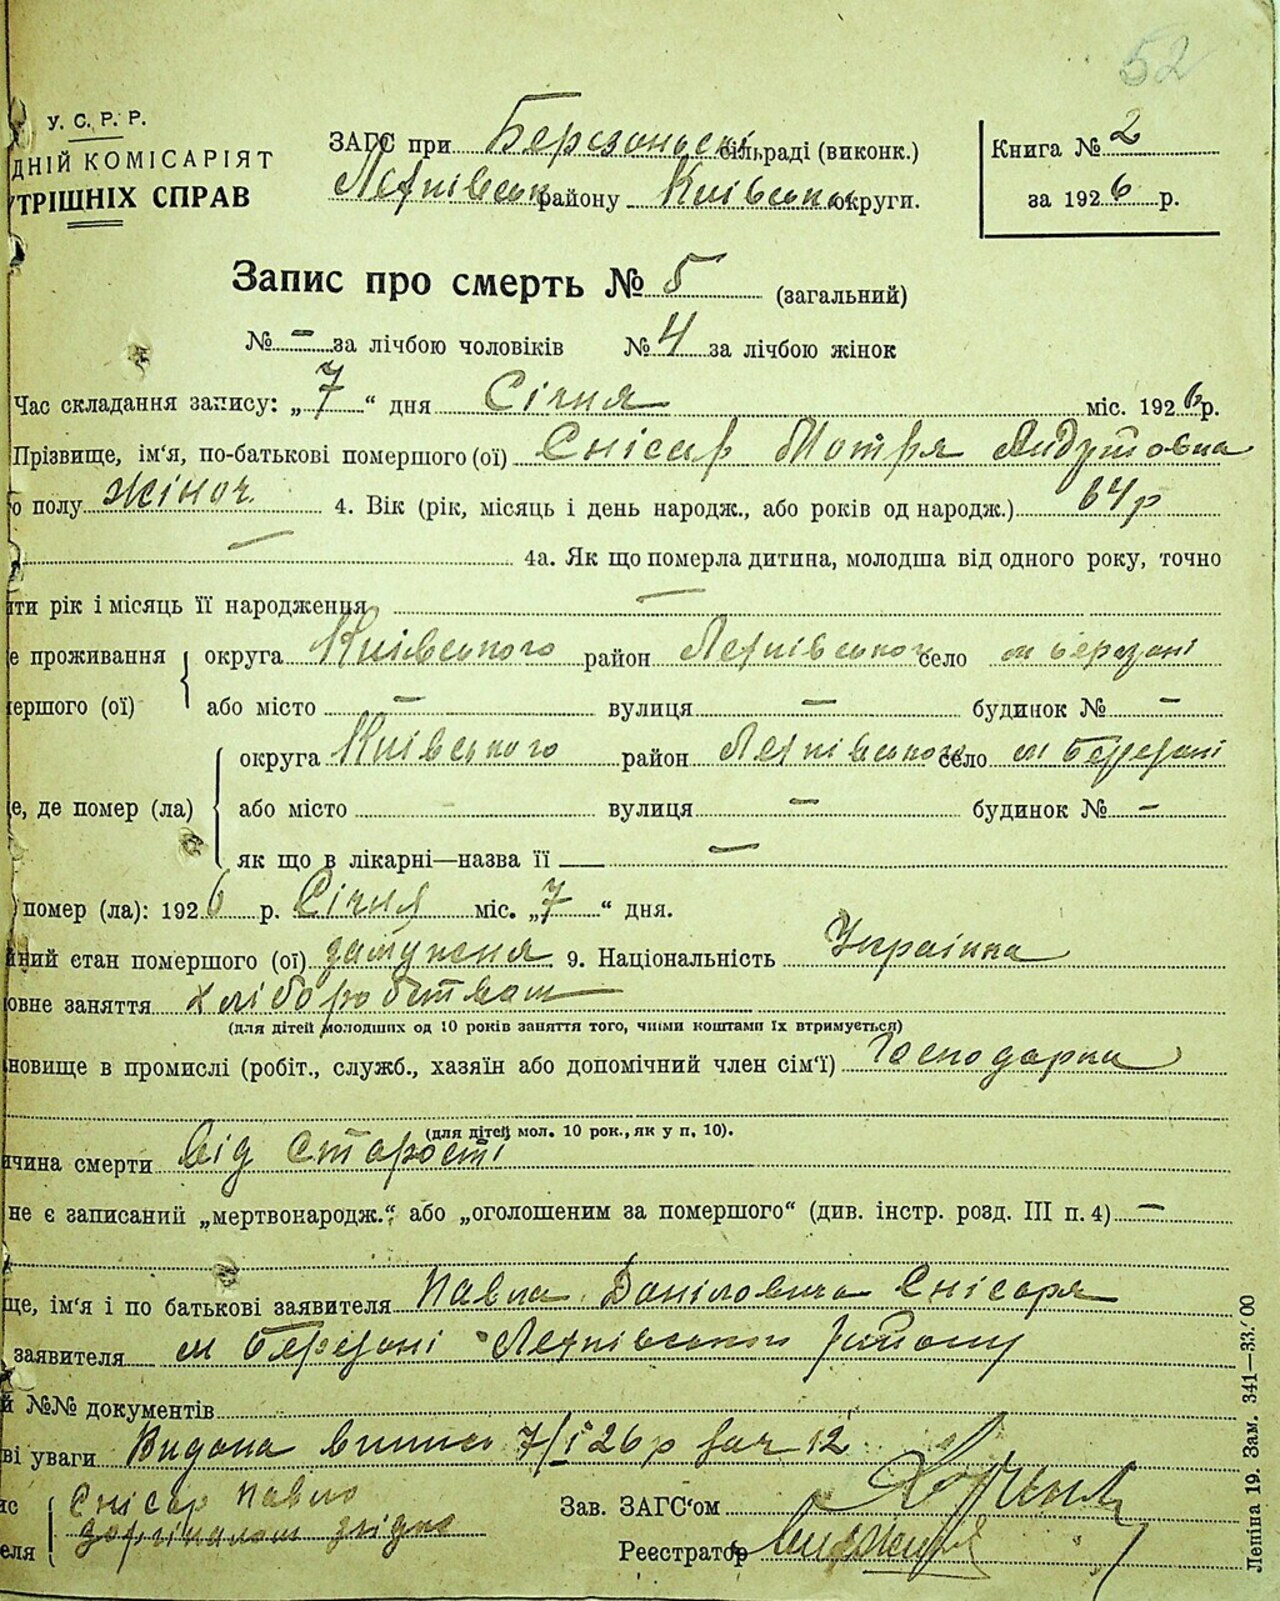 52
У. С. Р. Р.
ДНІЙ КОМІСАРІЯТ
ТРІШНІХ СПРАВ
ЗАГС при Березанські сільраді (виконк.)
району Київсько округи.
Книга № 2
за 1926 р.
Запис про смерть № 5 (загальний)
№ - за лічбою чоловіків № 4 за лічбою жінок
Час складання запису: „7“ дня Січня міс. 1926 р.
Прізвище, ім'я, по-батькові помершого (ої) Снісар Мотря
о полу жіноч 4. Вік (рік, місяць і день народж., або років од народж.) 64 р
— 4а. Як що померла дитина, молодша від одного року, точно
ти рік і місяць її народження —
е проживання округа Київського район село м Березані
ершого (ої) або місто — вулиця — будинок № —
округа Київського район село м Березані
е, де помер (ла) або місто вулиця — будинок № —
як що в лікарні—назва її —
помер (ла): 1926 р. Січня міс. „7“ дня.
ний стан помершого (ої) 9. Національність Українка
овне заняття хліборобством
(для дітей молодших од 10 років заняття того, чиїми коштами їх втримується)
новище в промислі (робіт., служб., хазяїн або допомічний член сім'ї) Господарка
(для дітей мол. 10 рок., як у п. 10).
ичина смерти від старості
не є записаний „мертвонародж.“ або „оголошеним за помершого“ (див. інстр. розд. III п. 4) —
ще, ім'я і по батькові заявителя Павла Даніловича Снісаря
заявителя м Березані району
й №№ документів
ві уваги Видана 7/I 26 р 12
ис Снісар Павло
еля згідно
Зав. ЗАГС'ом
Реєстратор
Лепіна 19. Зам. 341—33.'00